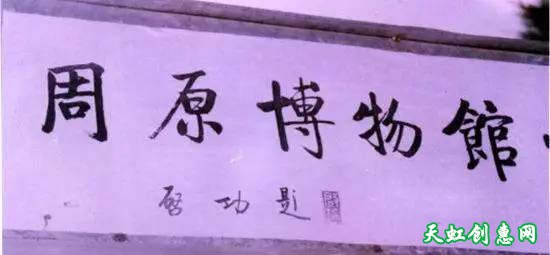 周原博物館
啓功題
天虹创惠网